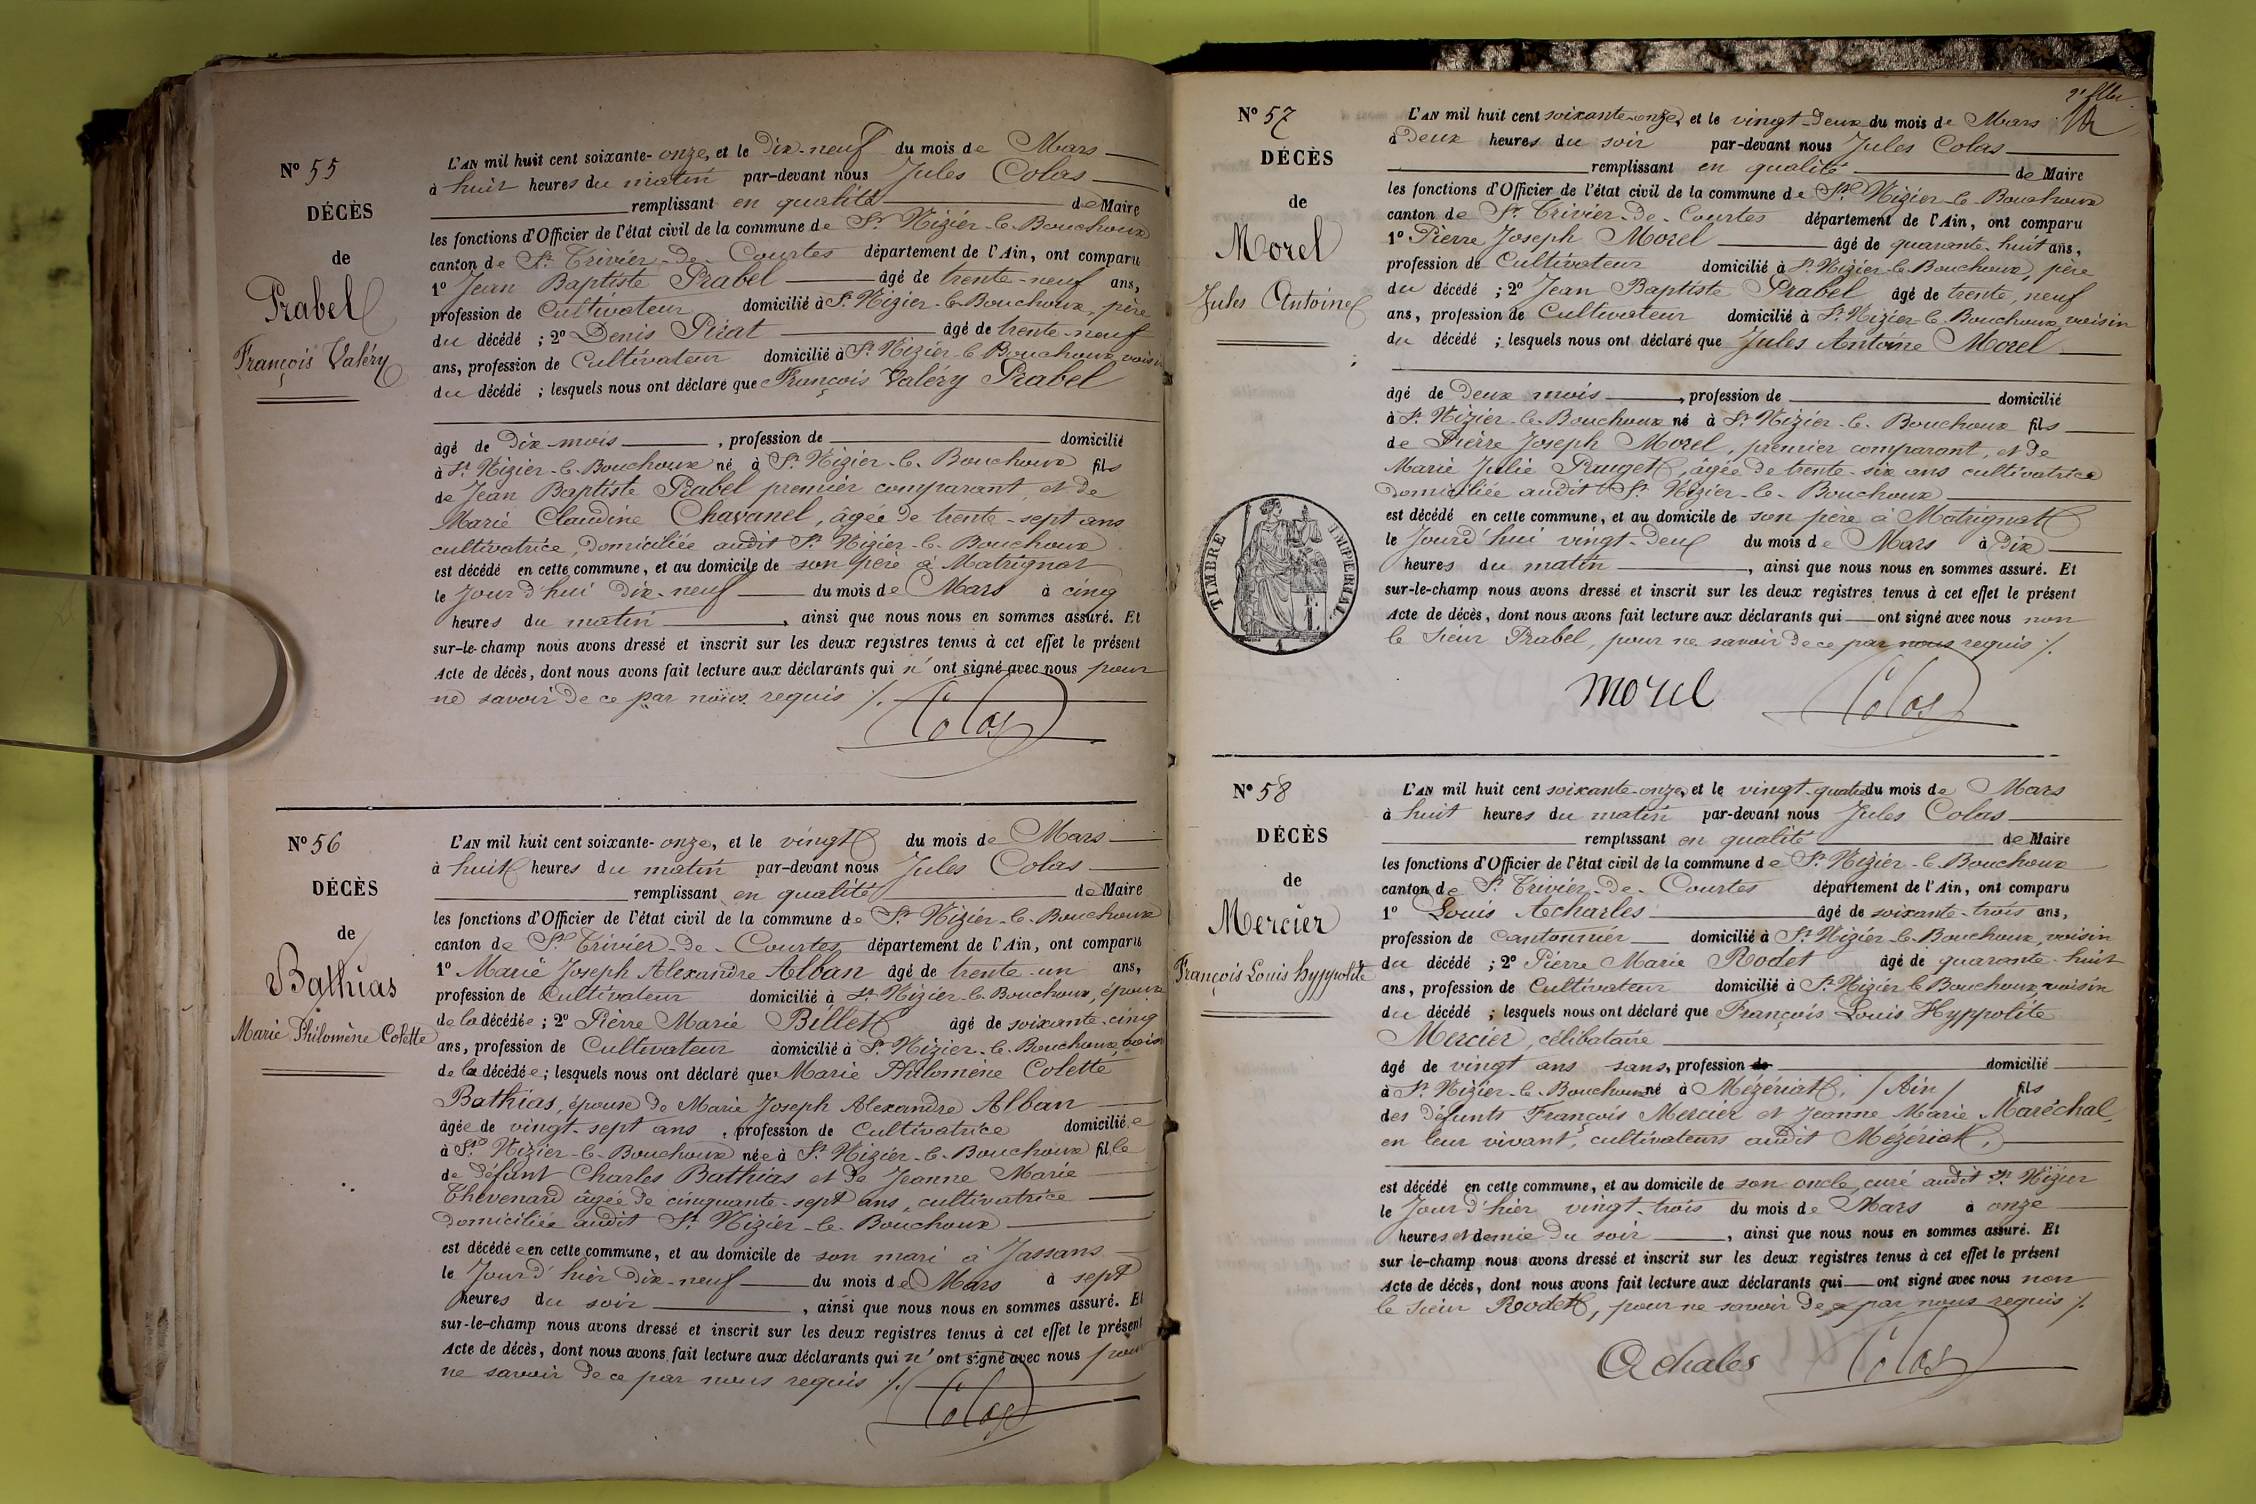 N° 55
DÉCÈS
de
Prabel
François Valéry
L'AN mil huit cent soixante-onze, et le Dix-neuf du mois de Mars
à huit heures du matin par-devant nous Jules Colas
remplissant en qualité de Maire
les fonctions d'Officier de l'état civil de la commune de St Nizier-le-Bouchoux
canton de St Trivier-de-Courtes département de l'Ain, ont comparu
1° Jean Baptiste Prabel âgé de trente-neuf ans,
profession de Cultivateur domicilié à St Nizier-le-Bouchoux, père
du décédé ; 2° Denis Réat âgé de trente-neuf
ans, profession de Cultivateur domicilié à St Nizier-le-Bouchoux, voisin
du décédé ; lesquels nous ont déclaré que François Valéry Prabel
âgé de Dix-mois, profession de domicilié
à St Nizier-le-Bouchoux né à St Nizier-le-Bouchoux fils
de Jean Baptiste Prabel premier comparant, et de
Marie Claudine Chavanel, âgée de trente-sept ans
cultivatrice, domiciliée audit St Nizier-le-Bouchoux
est décédé en cette commune, et au domicile de son père à Matrignat
le Jourd'hui Dix-neuf du mois de Mars à cinq
heures du matin, ainsi que nous nous en sommes assuré. Et
sur-le-champ nous avons dressé et inscrit sur les deux registres tenus à cet effet le présent
Acte de décès, dont nous avons fait lecture aux déclarants qui n'ont signé avec nous pour
ne savoir de ce par nous requis ./.
Colas
N° 56
DÉCÈS
de
Bathias
Marie Philomène Colette
L'AN mil huit cent soixante-onze, et le vingt du mois de Mars
à huit heures du matin par-devant nous Jules Colas
remplissant en qualité de Maire
les fonctions d'Officier de l'état civil de la commune de St Nizier-le-Bouchoux
canton de St Trivier-de-Courtes département de l'Ain, ont comparu
1° Marie Joseph Alexandre Alban âgé de trente-un ans,
profession de Cultivateur domicilié à St Nizier-le-Bouchoux, époux
de la décédée ; 2° Pierre Marie Billet âgé de soixante-cinq
ans, profession de Cultivateur domicilié à St Nizier-le-Bouchoux, voisin
de la décédée ; lesquels nous ont déclaré que Marie Philomène Colette
Bathias, épouse de Marie Joseph Alexandre Alban
âgée de vingt-sept ans, profession de Cultivatrice domiciliée
à St Nizier-le-Bouchoux née à St Nizier-le-Bouchoux fille
de défunt Charles Bathias et de Jeanne Marie
Thevenard âgée de cinquante-sept ans, cultivatrice
domiciliée audit St Nizier-le-Bouchoux
est décédée en cette commune, et au domicile de son mari à Jassans
le Jour d'hier Dix-neuf du mois de Mars à sept
heures du soir, ainsi que nous nous en sommes assuré. Et
sur-le-champ nous avons dressé et inscrit sur les deux registres tenus à cet effet le présent
Acte de décès, dont nous avons fait lecture aux déclarants qui n'ont signé avec nous pour
ne savoir de ce par nous requis ./.
Colas
N° 57
DÉCÈS
de
Morel
Jules Antoine
L'AN mil huit cent soixante-onze, et le vingt-deux du mois de Mars
à Deux heures du soir par-devant nous Jules Colas
remplissant en qualité de Maire
les fonctions d'Officier de l'état civil de la commune de St Nizier-le-Bouchoux
canton de St Trivier-de-Courtes département de l'Ain, ont comparu
1° Pierre Joseph Morel âgé de quarante-huit ans,
profession de Cultivateur domicilié à St Nizier-le-Bouchoux, père
du décédé ; 2° Jean Baptiste Prabel âgé de trente, neuf
ans, profession de Cultivateur domicilié à St Nizier-le-Bouchoux, voisin
du décédé ; lesquels nous ont déclaré que Jules Antoine Morel
âgé de Deux mois, profession de domicilié
à St Nizier-le-Bouchoux né à St Nizier-le-Bouchoux fils
de Pierre Joseph Morel, premier comparant, et de
Marie Julie Puget, âgée de trente-six ans cultivatrice
domiciliée audit St Nizier-le-Bouchoux
est décédé en cette commune, et au domicile de son père à Matrignat
le Jourd'hui vingt-deux du mois de Mars à Dix
heures du matin, ainsi que nous nous en sommes assuré. Et
sur-le-champ nous avons dressé et inscrit sur les deux registres tenus à cet effet le présent
Acte de décès, dont nous avons fait lecture aux déclarants qui ont signé avec nous non
le sieur Prabel, pour ne savoir de ce par nous requis ./.
TIMBRE IMPERIAL
Morel Colas
N° 58
DÉCÈS
de
Mercier
François Louis hyppolite
L'AN mil huit cent soixante-onze, et le vingt-quatre du mois de Mars
à huit heures du matin par-devant nous Jules Colas
remplissant en qualité de Maire
les fonctions d'Officier de l'état civil de la commune de St Nizier-le-Bouchoux
canton de St Trivier-de-Courtes département de l'Ain, ont comparu
1° Louis Acharles âgé de soixante-trois ans,
profession de cantonnier domicilié à St Nizier-le-Bouchoux, voisin
du décédé ; 2° Pierre Marie Rodet âgé de quarante-huit
ans, profession de Cultivateur domicilié à St Nizier le Bouchoux, voisin
du décédé ; lesquels nous ont déclaré que François Louis Hyppolite
Mercier, célibataire
âgé de vingt ans sans, profession de domicilié
à St Nizier-le-Bouchoux né à Mézériat, /Ain/ fils
des défunts François Mercier et Jeanne Marie Maréchal,
en leur vivant, cultivateurs audit Mézériat,
est décédé en cette commune, et au domicile de son oncle, curé audit St Nizier
le Jour d'hier vingt-trois du mois de Mars à onze
heures et demie du soir, ainsi que nous nous en sommes assuré. Et
sur le-champ nous avons dressé et inscrit sur les deux registres tenus à cet effet le présent
Acte de décès, dont nous avons fait lecture aux déclarants qui ont signé avec nous non
le sieur Rodet, pour ne savoir de ce par nous requis ./.
Achales Colas